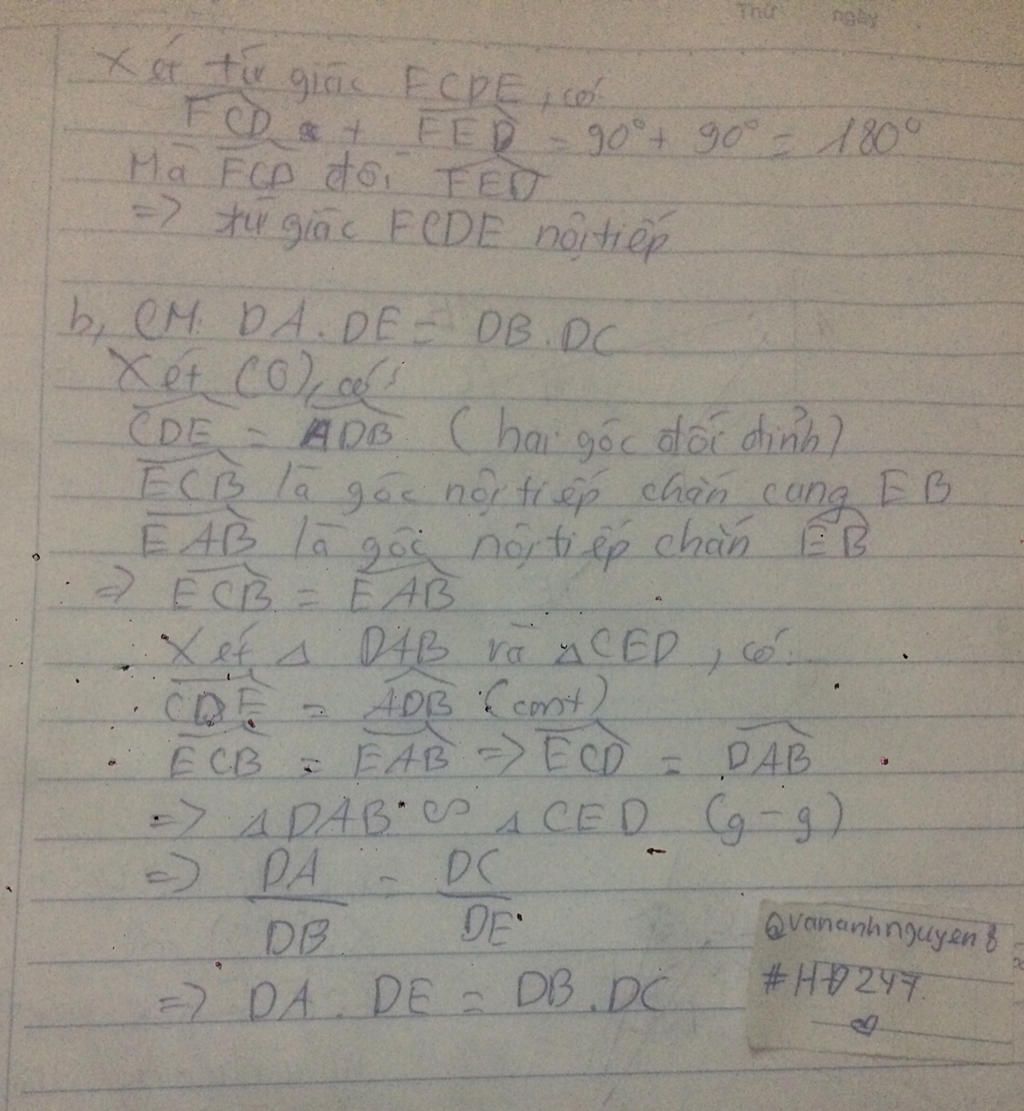 Thứ ngày
Xét tứ giác FCDE, có:
FCD + FED = 90° + 90° = 180°
Mà FCD đối FED
=> tứ giác FCDE nội tiếp
b, CM: DA.DE = DB.DC
Xét (O), có:
CDE = ADB (hai góc đối đỉnh)
ECB là góc nội tiếp chắn cung EB
EAB là góc nội tiếp chắn EB
=> ECB = EAB
Xét Δ DAB và ΔCED, có:
CDE = ADB (cmt)
ECB = EAB => ECD = DAB
=> ΔDAB ∽ ΔCED (g-g)
=> DA/DB = DC/DE
=> DA.DE = DB.DC
@vananhnguyen8
#HĐ247